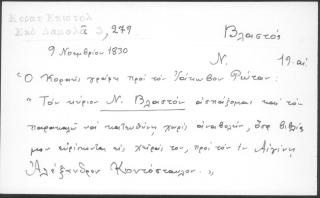 Κοραῆ Ἐπιστολ
Ἐκδ Δαμαλᾶ 3, 279
Βλαστός
9 Νοεμβρίου 1830
Ν. 19. αἰ
"Ὁ Κοραῆς γράφει πρὸς τὸν Ἰάκωβον Ρώταν:
"Τὸν κύριον Ν. Βλαστὸν ἀσπάζομαι καὶ τὸν
παρακαλῶ νὰ κατευθύνῃ χωρὶς ἀναβολὴν, ὅσα βιβλία
μου εὑρίσκονται εἰς χεῖράς του, πρὸς τὸν ἐν Αἰγίνῃ
Ἀλέξανδρον Κοντόσταυλον.»